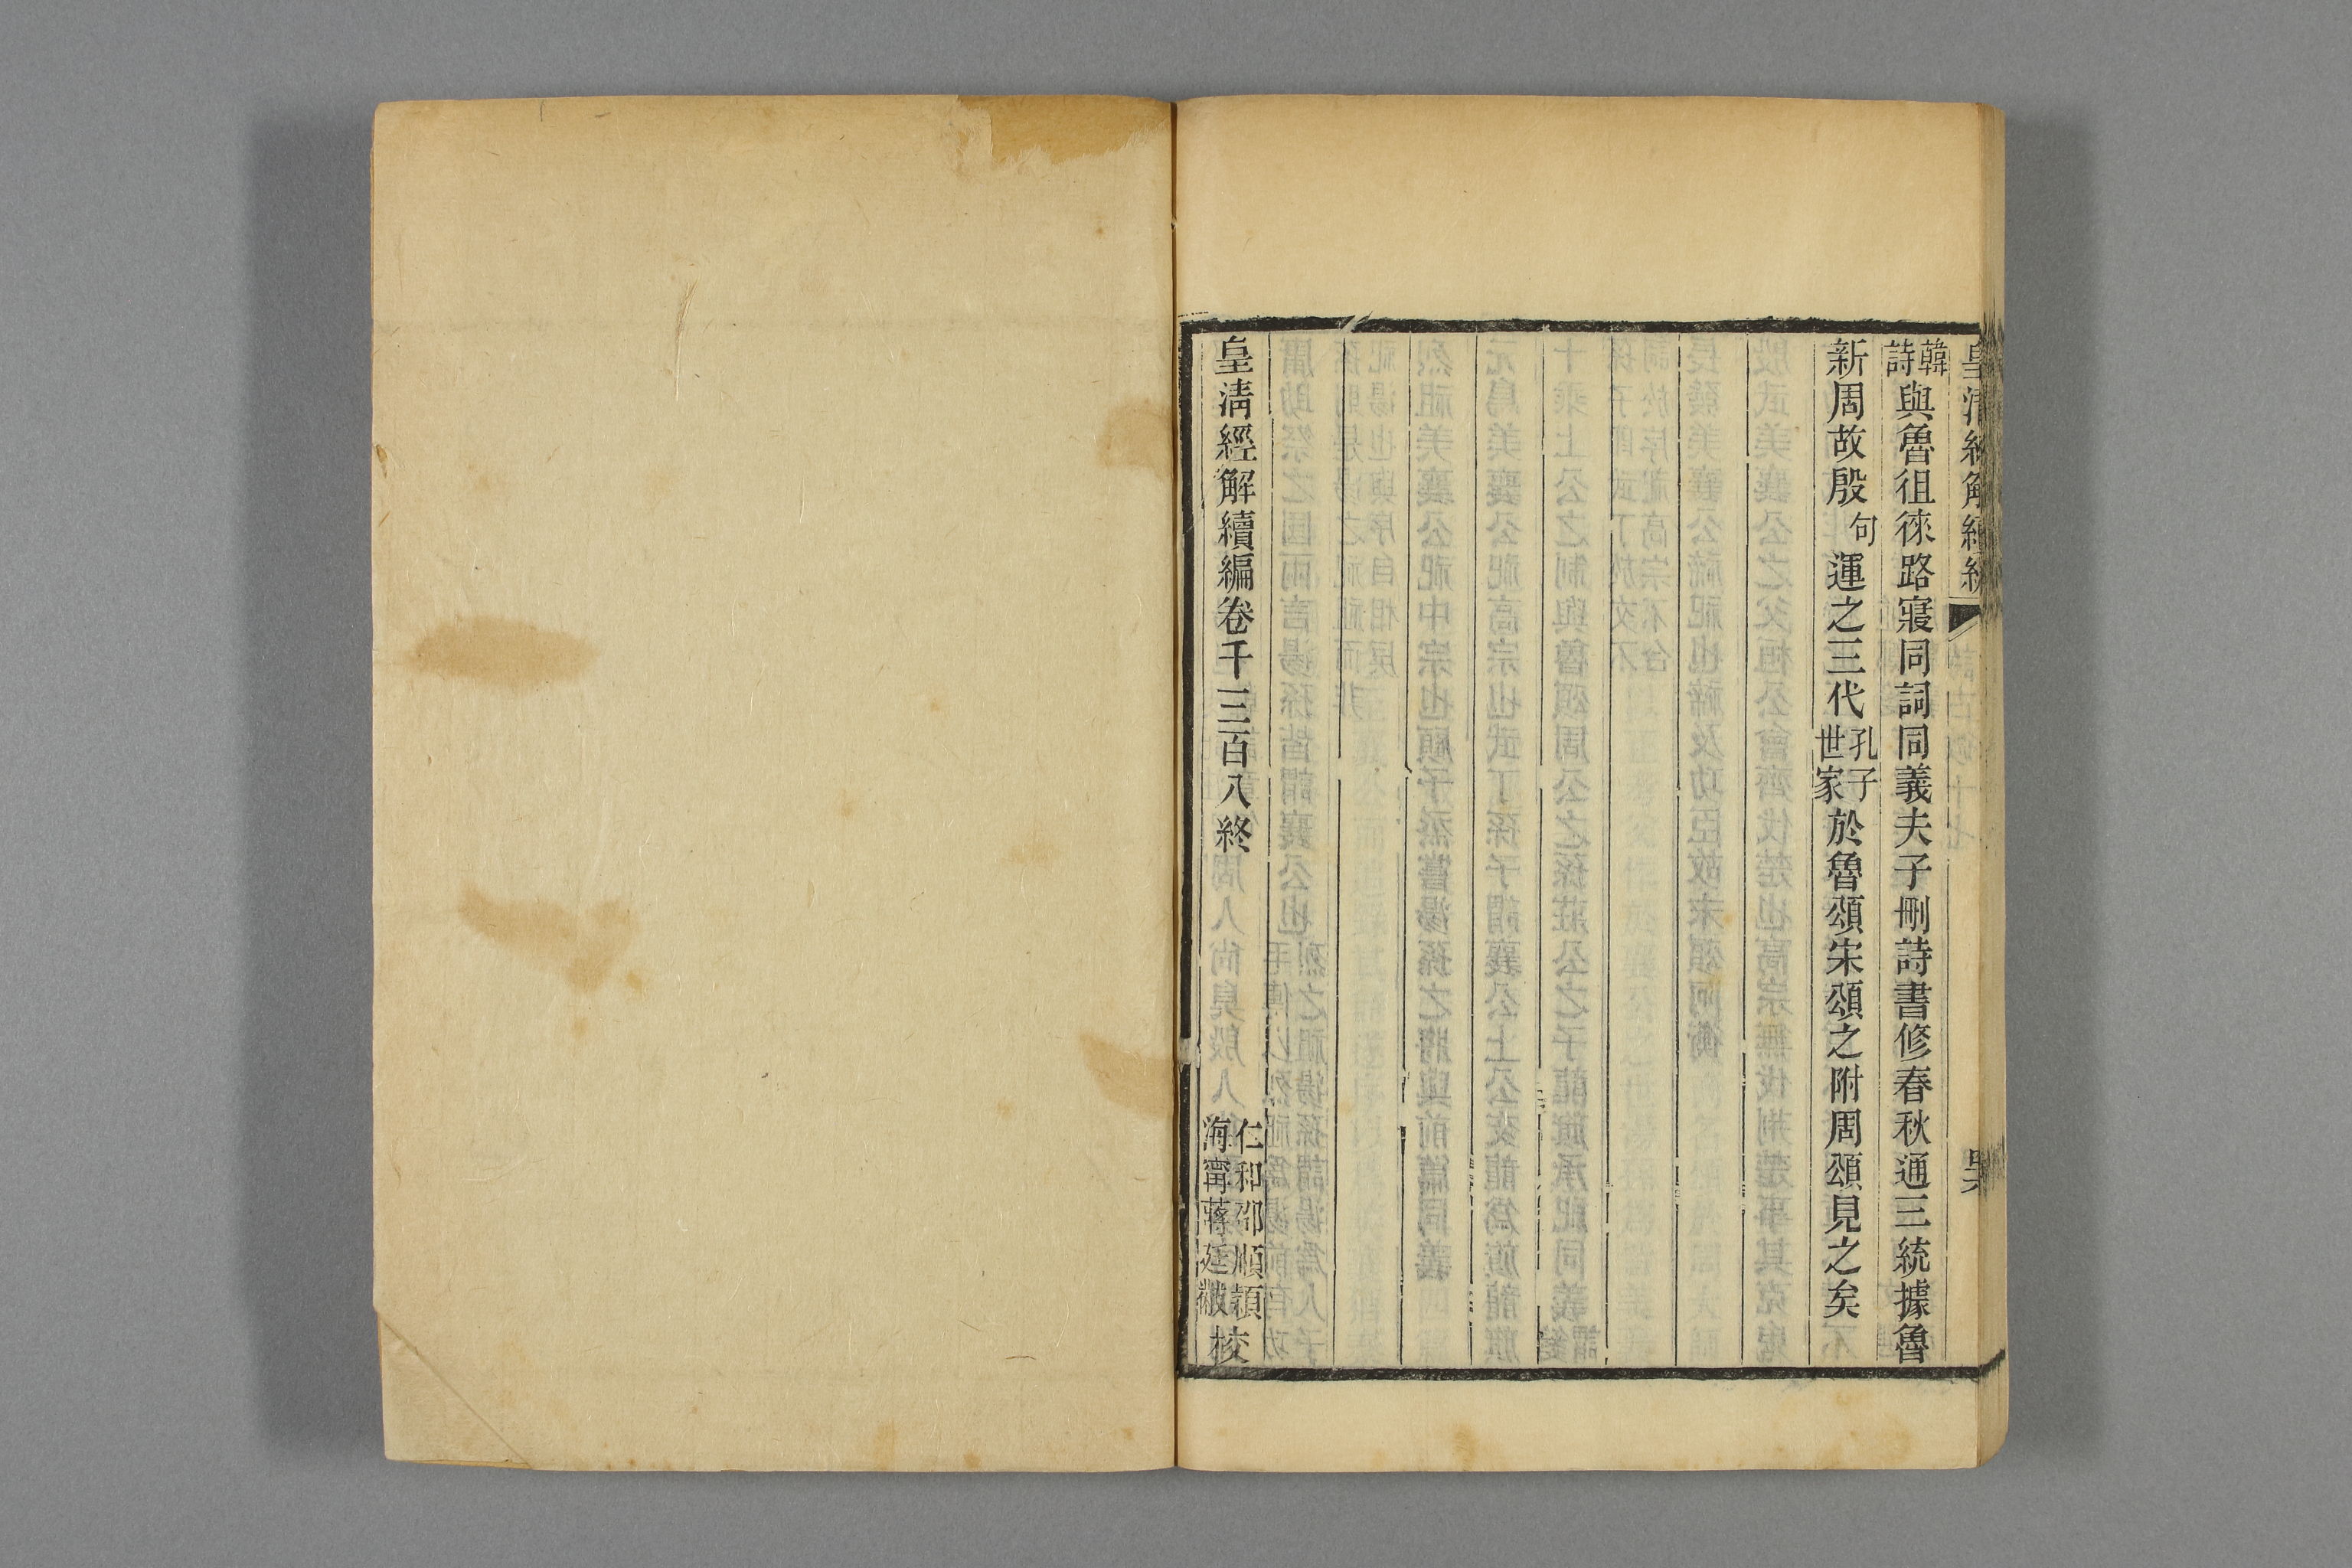 皇清經解續編
韓詩與魯徂徠路寢同詞同義夫子刪詩書修春秋通三統據魯
新周故殷句運之三代孔子世家於魯頌宋頌之附周頌見之矣
皇清經解續編卷千三百八終
仁和邵順穎
海甯蔣廷黻校